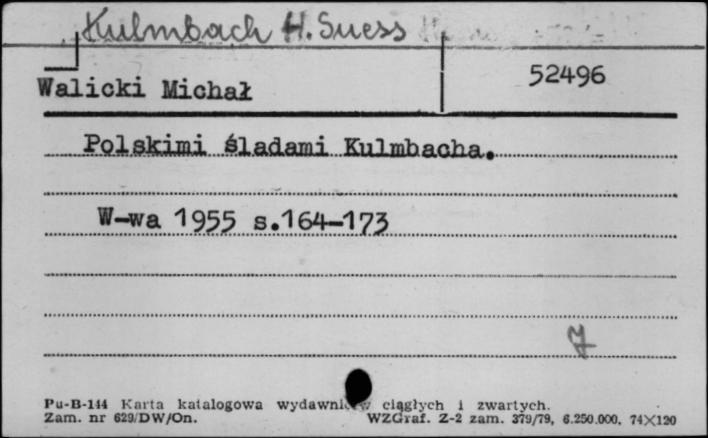 Kulmbach H. Suess
52496
Walicki Michał
Polskimi śladami Kulmbacha.
W-wa 1955 s.164-173
7
Pu-B-144 Karta katalogowa wydawnictw ciągłych i zwartych.
Zam. nr 629/DW/On. WZGraf. Z-2 zam. 379/79, 6.250.000, 74×120